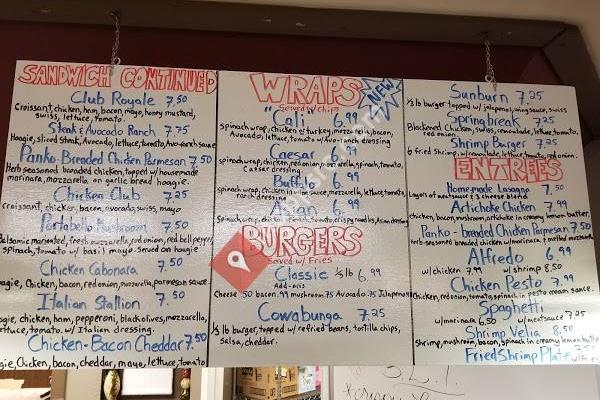 SANDWICH CONTINUED
Club Royale 7.50
Croissant, chicken, ham, bacon, mayo, honey mustard,
swiss, lettuce, tomato.
Steak & Avocado Ranch 7.75
Hoagie, sliced steak, Avocado, lettuce, tomato, Avo-ranch sauce
Panko-Breaded Chicken Parmesan 7.50
Herb seasoned breaded chicken, topped w/housemade
marinara, mozzarella on garlic bread hoagie.
Chicken Club 7.25
croissant, chicken, bacon, avocado, swiss, mayo
Portabello Mushroom 7.50
Balsamic marinated, fresh mozzarella, red onion, red bell pepper,
spinach, tomato w/ basil mayo. served on hoagie
Chicken Cabonara 7.50
hoagie, Chicken, bacon, red onion, mozzarella, parmesan sauce.
Italian Stallion 7.50
hoagie, chicken, ham, pepperoni, black olives, mozzarella,
lettuce, tomato. w/ Italian dressing.
Chicken-Bacon Cheddar 7.50
hoagie, Chicken, bacon, cheddar, mayo, lettuce, tomato
WRAPS
Served w/ chips
NEW
"Cali" 6.99
spinach wrap, chicken or turkey, mozzarella, bacon,
Avocado, lettuce, tomato w/
Caesar 6.99
spinach wrap, chicken, red onion, mozzarella, spinach, tomato,
Caesar dressing.
Buffalo 6.99
spinach wrap, chicken in wing sauce, mozzarella, lettuce, tomato,
ranch dressing
Asian 6.99
Spinach wrap, chicken, spinach, tomato, crispy noodles, Asian dressing
BURGERS
Served w/ Fries
Classic 1/3 lb 6.99
Add-ons
Cheese .50 bacon .99 mushroom .75 Avocado .75 Jalapeno
Cowabunga 7.25
1/3 lb burger, topped w/ refried beans, tortilla chips,
salsa, cheddar.
Sunburn 7.25
1/3 lb burger topped w/ jalapeno, wing sauce, swiss
Springbreak 7.25
Blackened Chicken, swiss, remoulade, lettuce, tomato,
red onion.
Shrimp Burger 7.25
6 fried Shrimp, w/ remoulade, lettuce, tomato, red onion.
ENTREES
Homemade Lasagna 7.50
Layers of meat sauce & 3 cheese blend
Artichoke Chicken 7.99
chicken, bacon, mushroom, artichoke in creamy lemon-butter.
Panko-breaded Chicken Parmesan 7.50
herb-seasoned breaded chicken w/ marinara & melted mozzarella
Alfredo 6.99
w/ chicken 7.99 w/ shrimp 8.50
Chicken Pesto 7.99
Chicken, red onion, tomato, spinach in pesto cream sauce.
Spaghetti
w/ marinara 6.50 w/ meat sauce 7.25
Shrimp Velia 8.50
shrimp, mushroom, bacon, spinach in creamy lemon butter
Fried Shrimp Plate
w/ Fries